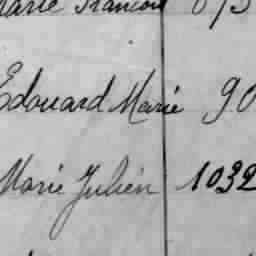 Marie Francois
Edouard Marie 90
Marie Julien 1032